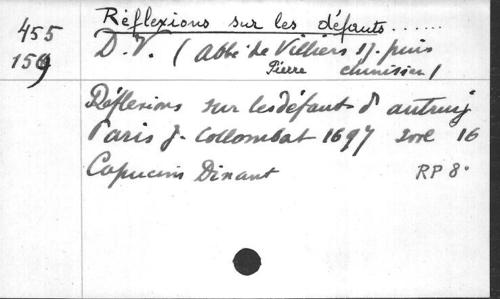 Réflexions sur les défauts......
455
D.V. (Abbé de Villiers S.J. puis
Pierre clunisien)
159
Réflexions sur les défauts d'autruy
Paris J. Collombat 1697 2 vol 16
Capucins Dinant RP 8°